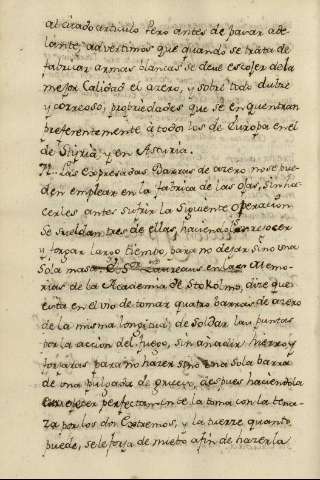 al citado articulo Pero antes de pasar ade
lante, advertimos que quando se trata de
fabricar armas blancas se deve escojer de la
mejor Calidad el azero, y sobre todo dulze
y correoso, propriedades que se enquentran
preferentemente à todos los de Europa en el
de Stiria y en Asturia.
Las expresadas Barras de azero no se pue
den emplear en la fabrica de las ojas, sin ha
cerles antes sufrir la siguiente operacion
Se sueldan tres de ellas, haciendolas
y forgar largo tiempo, para no dejar sino una
Sola masa en las Memo
rias de la Academia de Stokolmo, dize que
esta en el vio de tomar quatro barras de azero
de la misma longitud, de Soldar las puntas
por la accion del fuego, sin añadir hierro y
forjarlas para no hazer sino una Sola barra
de una pulgada de grueso, despues haciendola
perfectamente la toma con la tena-
za por los dos Extremos, y la tuerze quanto
puede, se le forja de nuevo afin de hazerla